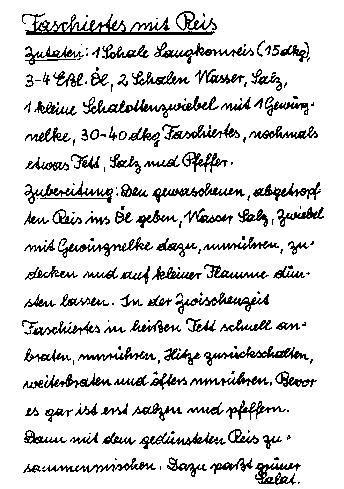 Faschiertes mit Reis
Zutaten: 1 Schale Langkornreis (15 dkg),
3-4 Eßl. Öl, 2 Schalen Wasser, Salz,
1 kleine Schalottenzwiebel mit 1 Gewürz-
nelke, 30-40 dkg Faschiertes, nochmals
etwas Fett, Salz und Pfeffer.
Zubereitung: Den gewaschenen, abgetropf-
ten Reis ins Öl geben, Wasser Salz, Zwiebel
mit Gewürznelke dazu, umrühren, zu-
decken und auf kleiner Flamme dün-
sten lassen. In der Zwischenzeit
Faschiertes in heißen Fett schnell an-
braten, umrühren, Hitze zurückschalten,
weiterbraten und öfters umrühren. Bevor
es gar ist erst salzen und pfeffern.
Dann mit dem gedünsteten Reis zu-
sammenmischen. Dazu paßt grüner
Salat.